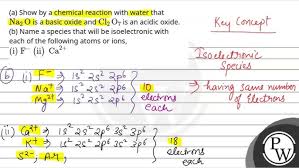 (a) Show by a chemical reaction with water that
Na₂O is a basic oxide and Cl₂O₇ is an acidic oxide.
(b) Name a species that will be isoelectronic with
each of the following atoms or ions,
(i) F⁻ (ii) Ca²⁺
Key Concept
Isoelectronic
Species
→ having same number
of Electrons
(b) (i) F⁻ → 1s² 2s² 2p⁶
Na⁺ → 1s² 2s² 2p⁶
Mg²⁺ → 1s² 2s² 2p⁶
10
electrons
each
(ii) Ca²⁺ → 1s² 2s² 2p⁶ 3s² 3p⁶
K⁺ → 1s² 2s² 2p⁶ 3s² 3p⁶
S²⁻, Ar
18
electrons
each
PW